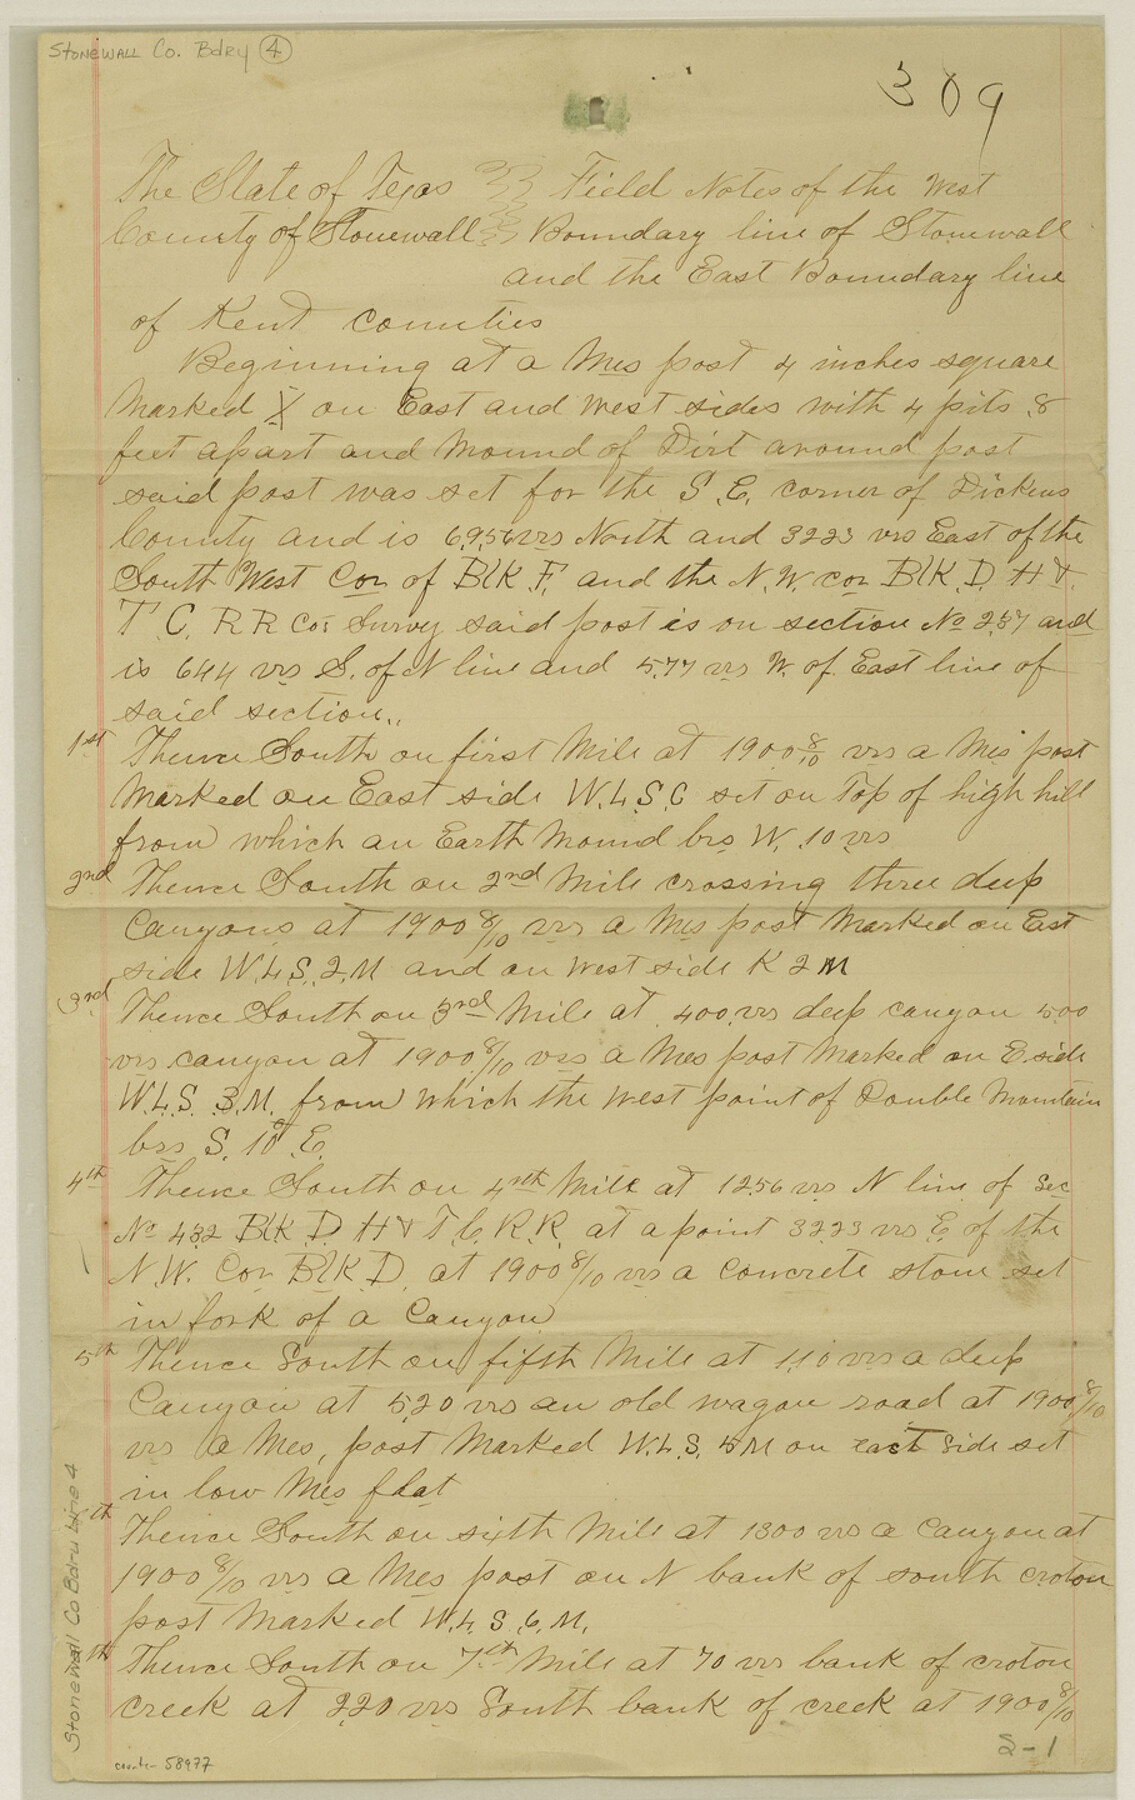 Stonewall Co. Bdry 4
309
The State of Texas Field Notes of the West
County of Stonewall Boundary line of Stonewall
and the East Boundary line
of Kent Counties
Beginning at a Mes post 4 inches square
Marked X on East and West sides with 4 pits 8
feet apart and Mound of Dirt around post
said post was set for the S.E. corner of Dickens
County and is 6956 vrs North and 3223 vrs East of the
South West Cor of Blk F. and the N.W. cor Blk D. H &
T C. R R Cos Survey said post is on section No 237 and
is 644 vrs S. of N line and 577 vrs W. of East line of
said section..
1st Thence South on first Mile at 1900 8/10 vrs a Mes post
Marked on East side W.L.S.C set on Top of high hill
from which an Earth Mound brs W. 10 vrs
2nd Thence South on 2nd Mile crossing three deep
Canyons at 1900 8/10 vrs a Mes post Marked on East
side W.L.S. 2.M and on West side K 2 M
3rd Thence South on 3rd Mile at 400 vrs deep canyon 500
vrs canyon at 1900 8/10 vrs a Mes post Marked on E side
W.L.S. 3.M. from which the West point of Double Mountain
brs S. 10° E.
4th Thence South on 4th Mile at 1256 vrs N line of Sec
No 432 Blk D. H & T C. R.R. at a point 3223 vrs E. of the
N.W. Cor Blk D. at 1900 8/10 vrs a Concrete stone set
in fork of a Canyon
5th Thence South on fifth Mile at 110 vrs a deep
Canyon at 520 vrs an old wagon road at 1900 8/10
vrs a Mes, post Marked W.L.S. 5 M on east side set
in low Mes flat
th Thence South on sixth Mile at 1300 vrs a Canyon at
1900 8/10 vrs a Mes post on N bank of south croton
post Marked W.L.S. 6. M.
th Thence South on 7th Mile at 70 vrs bank of croton
creek at 220 vrs South bank of creek at 1900 8/10
S-1
Stonewall Co Bdry Line 4
counter 58977